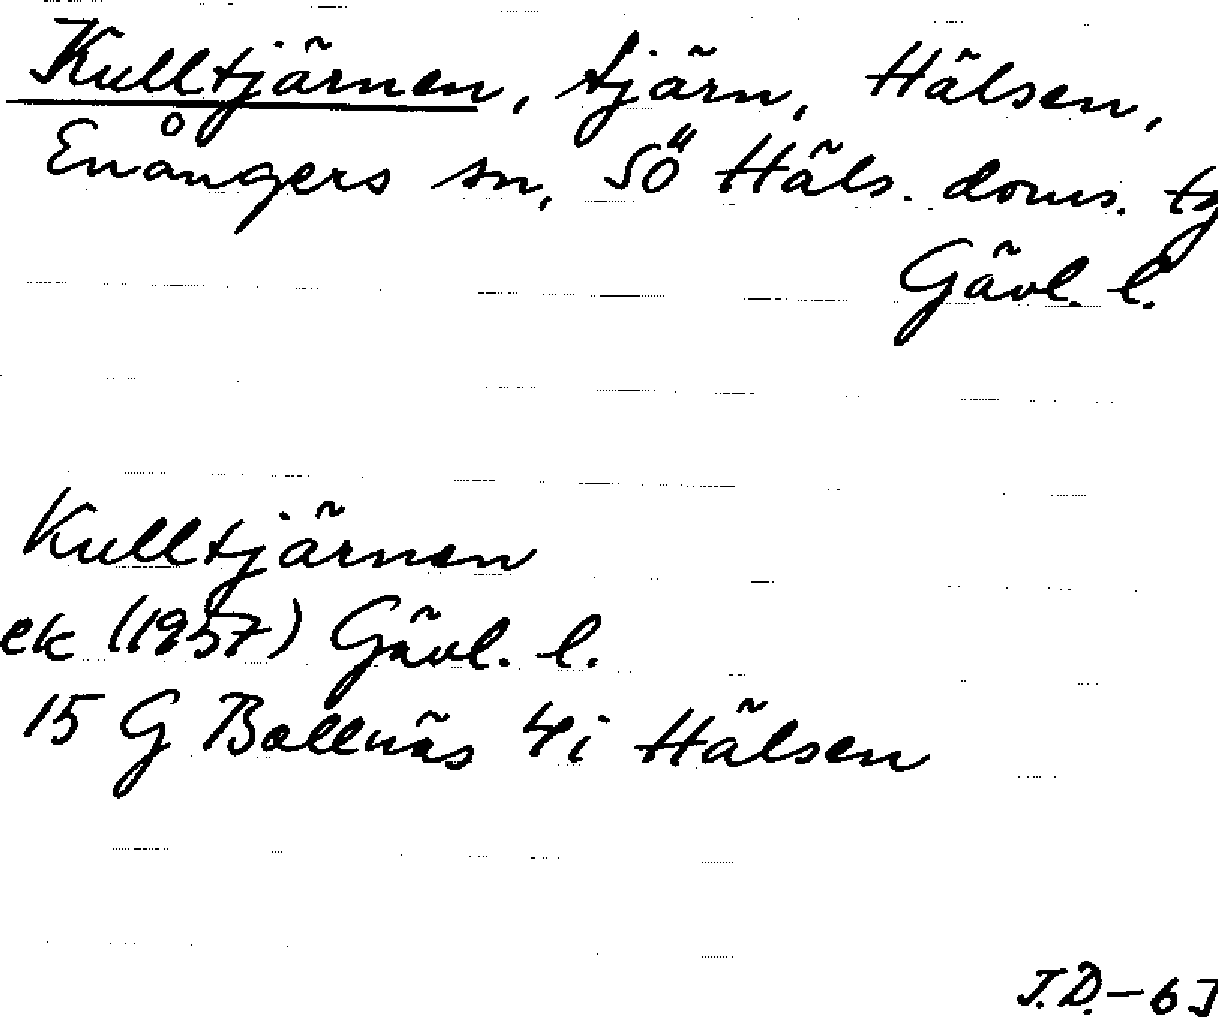 Kulltjärnen, tjärn, Hälsen,
Enångers sn, Sö Häls. doms. tg
Gävl. l.
Kulltjärnen
ek (1957) Gävl. l.
15 G Bollnäs 4i Hälsen
J.D. - 6